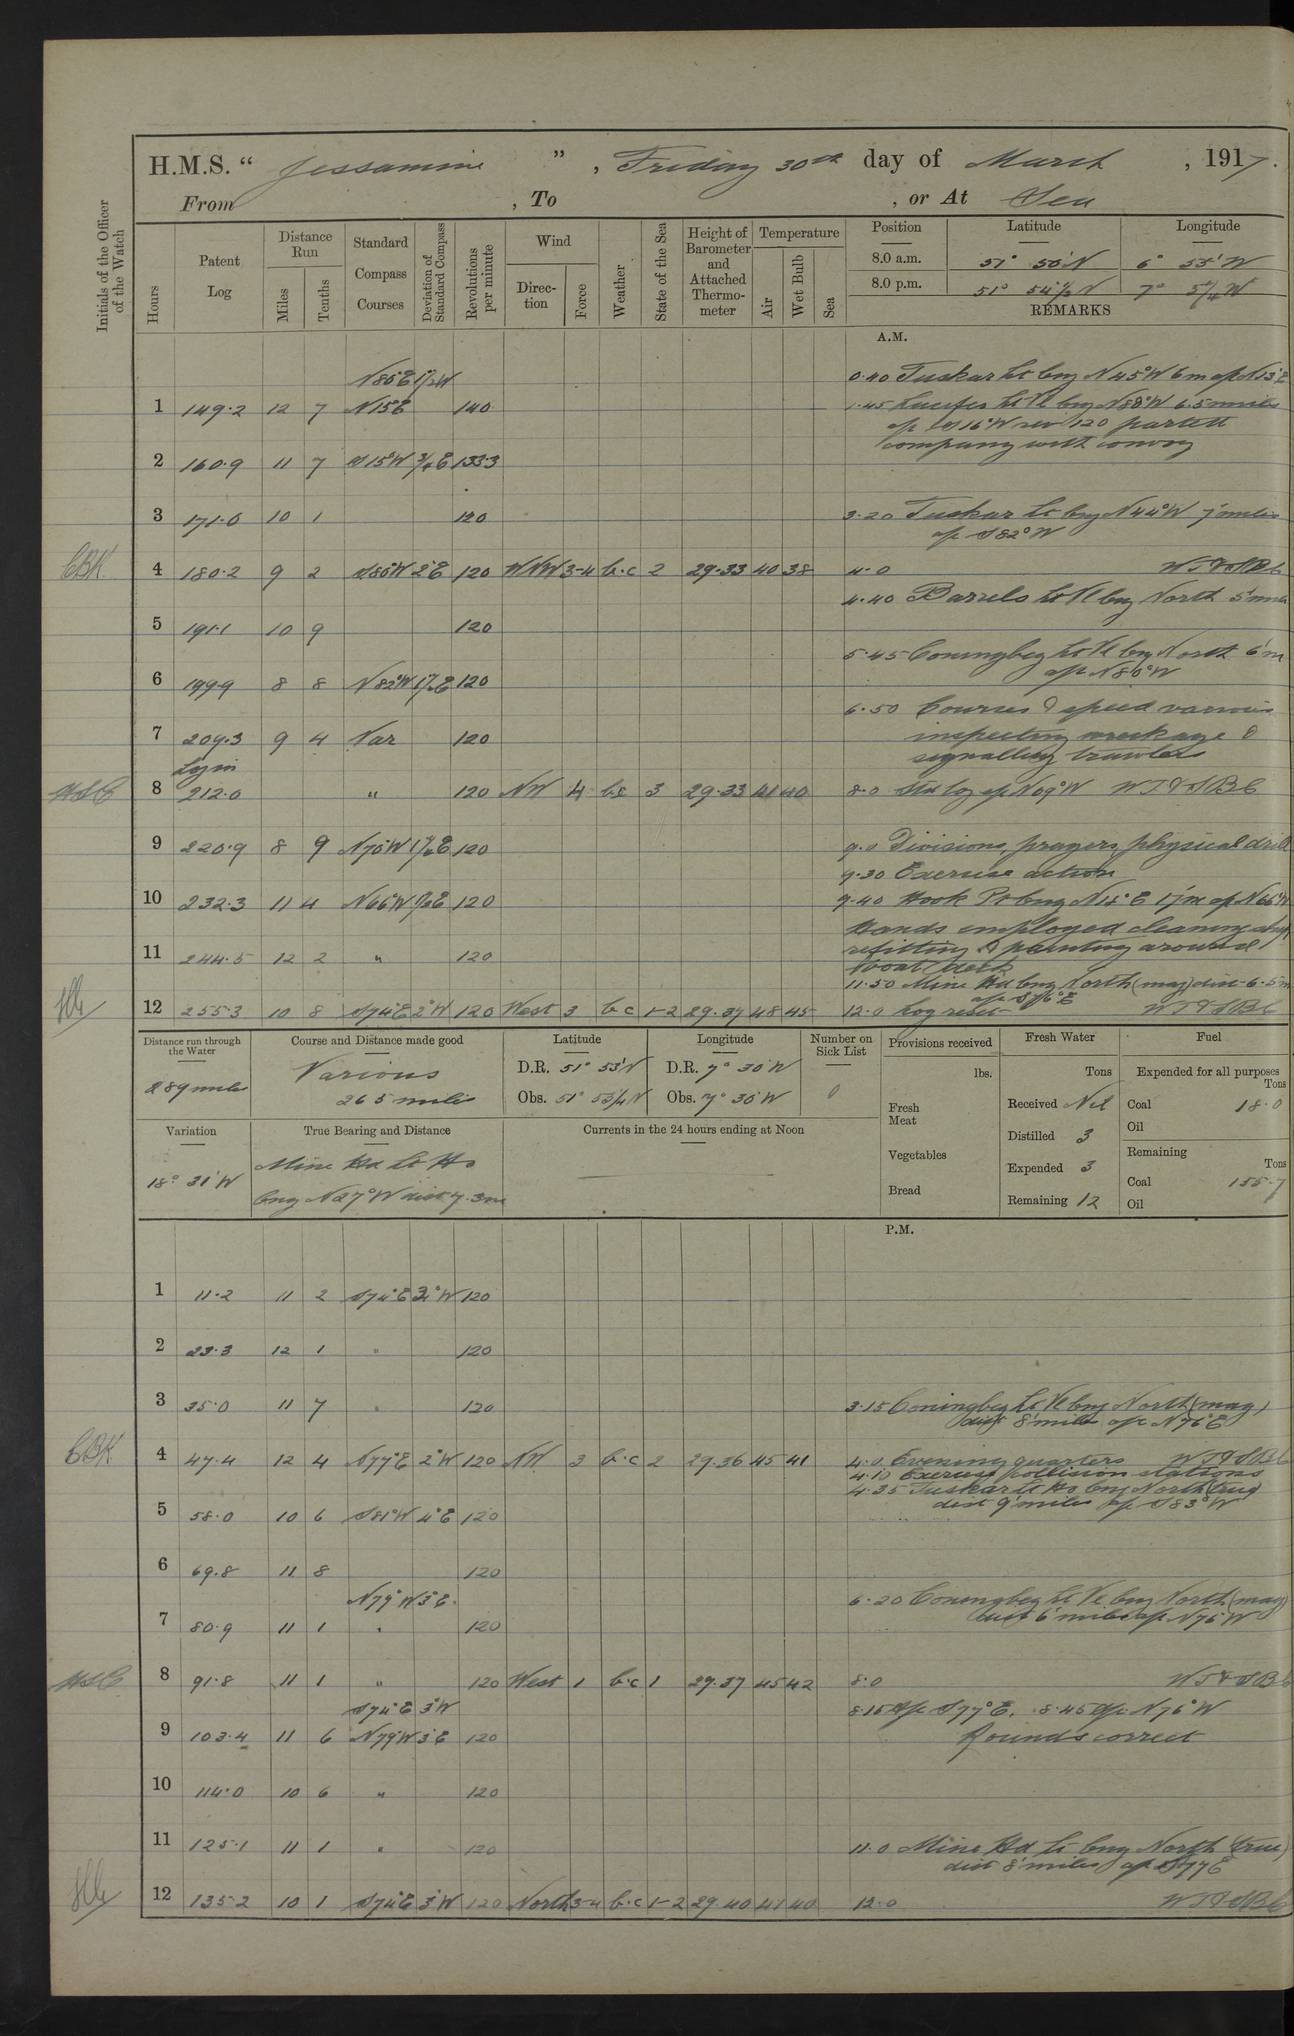 H.M.S. “ Jessamine ” , Friday 30th day of March , 1917.
From , To , or At Sea
Initials of the Officer of the Watch
Hours
Patent Log
Distance Run
Miles
Tenths
Standard Compass Courses
Deviation of Standard Compass
Revolutions per minute
Wind
Direction
Force
Weather
State of the Sea
Height of Barometer and Attached Thermometer
Temperature
Air
Wet Bulb
Sea
Position Latitude Longitude
8.0 a.m. 51° 50' N 6° 55' W
8.0 p.m. 51° 54½ N 7° 5¼ W
REMARKS
A.M.
N 86° E 1½ W
0.40 Tuskar Lt brg N 45° W 6 m a/c N 15° E
1 149.2 12 7 N 15 E 140
1.45 Lucifer Lt Vl brg N 88° W 6.5 miles
a/c S 16° W rev 120 parted
company with convoy
2 160.9 11 7 S 15° W ¾ E 133.3
3 171.0 10 1 120
3.20 Tuskar Lt brg N 44° W 7 miles
a/c S 82° W
CBK 4 180.2 9 2 S 80° W 2° E 120 WNW 3-4 b.c 2 29.33 40 38
4.0 WT & SBC
4.40 Barrels Lt Vl brg North 5 miles
5 191.1 10 9 120
5.45 Coningbeg Lt Vl brg North 6' m
a/c N 80° W
6 199.9 8 8 N 82° W 1½ E 120
6.50 Courses & speed various
inspecting wreckage &
signalling trawlers
7 209.3 9 4 Var 120
Log in
8 212.0 " 120 NW 4 b.c 3 29.33 41 40
8.0 Std log a/c N 69° W WT & SBC
9 220.9 8 9 N 70° W 1½ E 120
9.0 Divisions, prayers, physical drill
9.30 Exercise action
10 232.3 11 4 N 66° W 1½ E 120
9.40 Hook Pt brg N 14° E 17' m a/c N 66° W
Hands employed cleaning ship
refitting & painting around
boat deck
11 244.5 12 2 " 120
11.50 Mine Hd brg North (mag) dist 6.5 m
a/c S 76° E
12 255.3 10 8 S 74° E 2° W 120 West 3 b.c 1-2 29.37 48 45
12.0 Log reset WT & SBC
Distance run through the Water
289 miles
Course and Distance made good
Various
265 miles
Latitude
D.R. 51° 53' N
Obs. 51° 53¼ N
Longitude
D.R. 7° 30' W
Obs. 7° 30' W
Number on Sick List
0
Variation
18° 31' W
True Bearing and Distance
Mine Hd Lt Ho
brg N 27° W dist 7.3 m
Currents in the 24 hours ending at Noon
—
Provisions received
lbs.
Fresh Meat
Vegetables
Bread
Fresh Water
Tons
Received Nil
Distilled 3
Expended 3
Remaining 12
Fuel
Expended for all purposes
Tons
Coal 18.0
Oil
Remaining
Tons
Coal 155.7
Oil
P.M.
1 11.2 11 2 S 74° E 3° W 120
2 23.3 12 1 " 120
3 35.0 11 7 " 120
3.15 Coningbeg Lt Vl brg North (mag)
dist 8 miles a/c N 76° E
CBK 4 47.4 12 4 N 77° E 2° W 120 NW 3 b.c 2 29.36 45 41
4.0 Evening quarters WT & SBC
4.10 Exercise collision stations
4.35 Tuskar Lt Ho brg North (true)
dist 9' miles a/c S 83° W
5 58.0 10 6 S 81° W 4° E 120
6 69.8 11 8 120
N 79° W 3° E
6.20 Coningbeg Lt Vl brg North (mag)
dist 6' miles a/c N 76° W
7 80.9 11 1 " 120
8 91.8 11 1 " 120 West 1 b.c 1 29.37 45 42
8.0 WT & SBC
S 74° E 3° W
8.15 a/c S 77° E, 8.45 a/c N 76° W
9 103.4 11 6 N 79° W 3° E 120
Rounds correct
10 114.0 10 6 " 120
11 125.1 11 1 " 120
11.0 Mine Hd Lt brg North (true)
dist 8' miles a/c S 77 E
12 135.2 10 1 S 74° E 3° W 120 North 3-4 b.c 1-2 29.40 41 40
12.0 WT & SBC